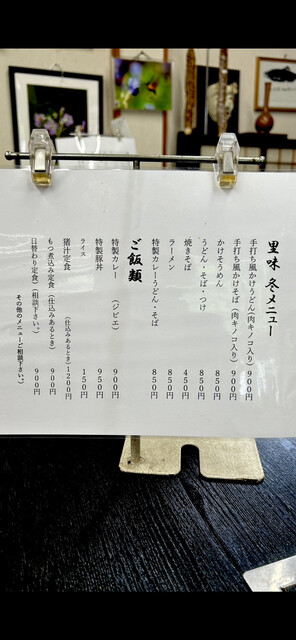 里味 冬メニュー
手打ち風かけうどん(肉キノコ入り) 900円
手打ち風かけそば(肉キノコ入り) 900円
かけそうめん 850円
うどん・そば・つけ 850円
焼きそば 450円
ラーメン 850円
特製カレーうどん・そば 850円
ご飯類
特製カレー (ジビエ) 900円
特製豚丼 950円
ライス 150円
猪汁定食 (仕込みあるとき) 1200円
もつ煮込み定食 (仕込みあるとき) 900円
日替わり定食 (相談下さい。) 900円
その他のメニューご相談下さい。